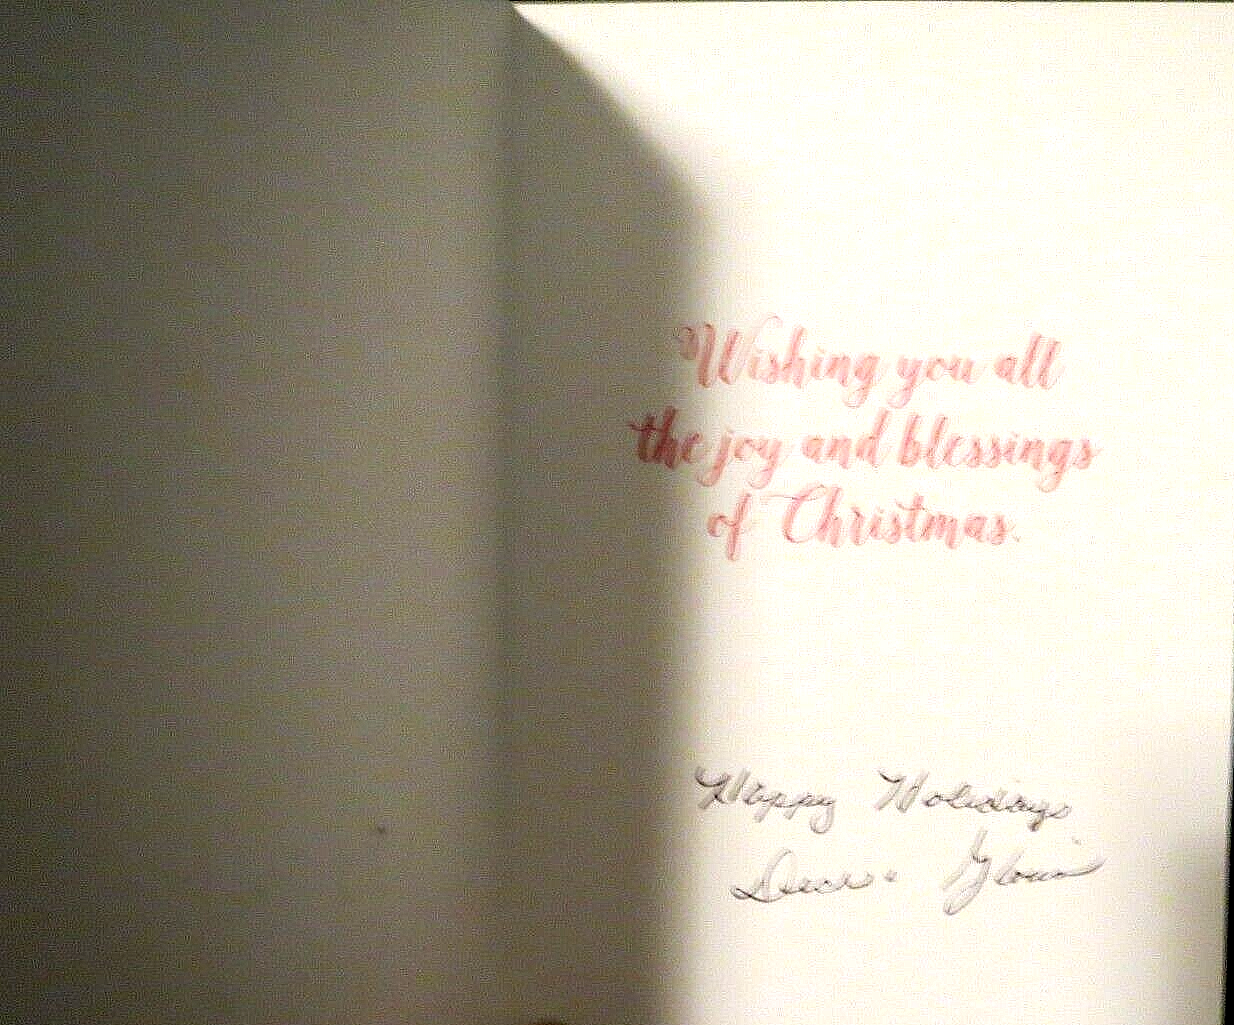 Wishing you all
the joy and blessings
of Christmas.
Happy Holidays
Gloria